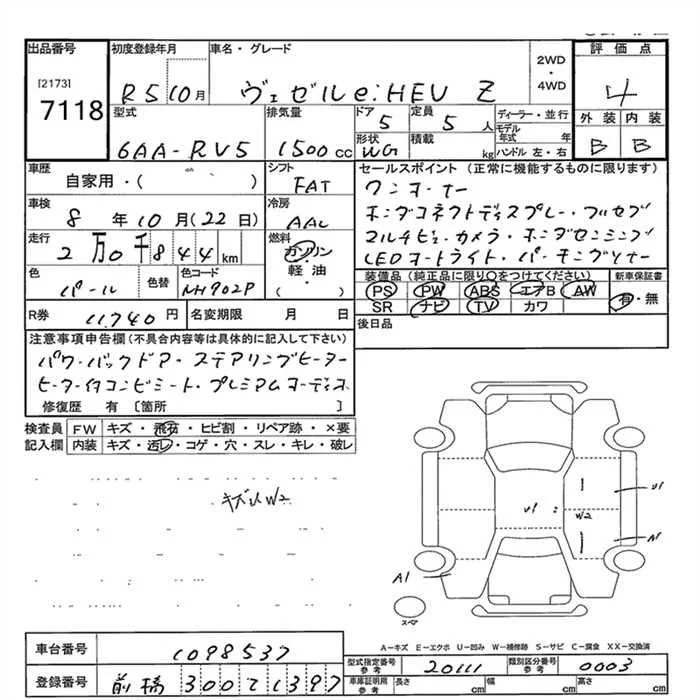 出品番号 初度登録年月 車名・グレード 2WD・4WD 評価点
[2173]
7118 R5 10月 ヴェゼル e:HEV Z 4
型式 排気量 ドア 定員 ディーラー・並行 外装 内装
6AA-RV5 1500cc 5 5人 モデル年式 年 B B
形状 積載 ハンドル 左・右
WG kg
車歴 シフト セールスポイント (正常に機能するものに限ります)
自家用・( ) FAT ワンオーナー
車検 冷房 ホンダコネクトディスプレー・フルセグ
8年10月(22日) AAC マルチビューカメラ・ホンダセンシング
走行 燃料 LEDオートライト・パーキングソナー
2万0千844km ガソリン・軽油 ( )
色 色替 色コード 装備品 (純正品に限り○をつけてください) 新車保証書
パール NH902P PS PW ABS エアB AW 有・無
SR ナビ TV カワ
R券 11,740円 名変期限 月 日 後日品
注意事項申告欄 (不具合内容等は具体的に記入して下さい)
パワーバックドア・ステアリングヒーター
ヒーター付コンビシート・プレミアムオーディオ
修復歴 有 [箇所 ]
検査員記入欄 FW キズ・飛石・ヒビ割・リペア跡・×要
内装 キズ・汚レ・コゲ・穴・スレ・キレ・破レ
W2
U1
W2
U1
A1
A1
スペア
A-キズ E-エクボ U-凹み W-補修跡 S-サビ C-腐食 XX-交換済
車台番号 1098537
型式指定番号 参考 20111 類別区分番号 参考 0003
登録番号 前橋 300 て 1397
車庫証明用 参考 長さ cm 幅 cm 高さ cm